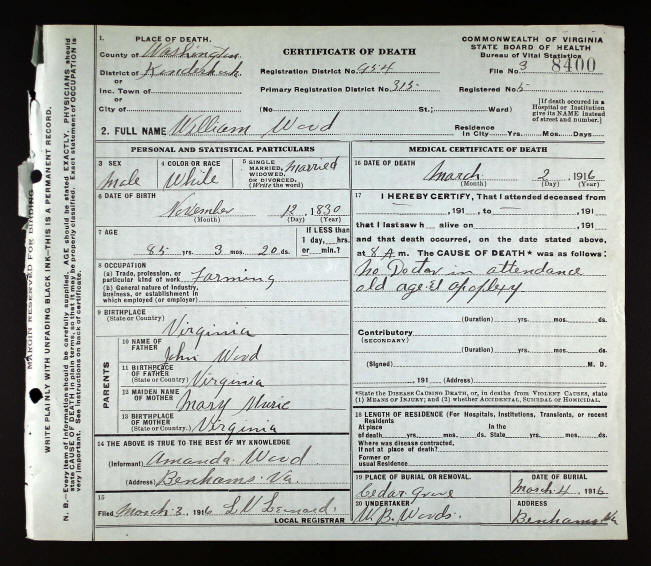 1. PLACE OF DEATH.
County of Washington
District of Kinderhook
or
Inc. Town of
or
City of
CERTIFICATE OF DEATH
Registration District No. 954
Primary Registration District No. 315
(No. St.; Ward)
COMMONWEALTH OF VIRGINIA
STATE BOARD OF HEALTH
Bureau of Vital Statistics
File No. 3 8400
Registered No. 5
[If death occured in a
Hospital or Institution
give its NAME instead
of street and number.]
2. FULL NAME William Wood
Residence
In City Yrs. Mos. Days
PERSONAL AND STATISTICAL PARTICULARS
3 SEX
male
4 COLOR OR RACE
White
5 SINGLE
MARRIED,
WIDOWED,
OR DIVORCED.
(Write the word)
Married
6 DATE OF BIRTH
November 12, 1830
(Month) (Day) (Year)
7 AGE
85 yrs. 3 mos. 20 ds.
If LESS than
1 day, hrs.
or min.?
8 OCCUPATION
(a) Trade, profession, or
particular kind of work Farming
(b) General nature of Industry,
business, or establishment in
which employed (or employer)
9 BIRTHPLACE
(State or Country)
Virginia
PARENTS
10 NAME OF
FATHER
John Wood
11 BIRTHPLACE
OF FATHER
(State or Country) Virginia
12 MAIDEN NAME
OF MOTHER
Mary Music
13 BIRTHPLACE
OF MOTHER
(State or Country) Virginia
14 THE ABOVE IS TRUE TO THE BEST OF MY KNOWLEDGE
(Informant) Amanda Wood
(Address) Benhams Va.
15
Filed March 3, 1916 L V Leonard
LOCAL REGISTRAR
MEDICAL CERTIFICATE OF DEATH
16 DATE OF DEATH
March 2, 1916
(Month) (Day) (Year)
17 I HEREBY CERTIFY, That I attended deceased from
, 191 , to , 191 ,
that I last saw h alive on , 191 ,
and that death occurred, on the date stated above,
at 8 A m. The CAUSE OF DEATH* was as follows:
no Doctor in attendance
old age apoplexy
(Duration) yrs. mos. ds.
Contributory
(SECONDARY)
(Duration) yrs. mos. ds.
(Signed) M. D.
, 191 (Address)
*State the DISEASE CAUSING DEATH, or, in deaths from VIOLENT CAUSES, state
(1) MEANS OF INJURY; and (2) whether ACCIDENTAL, SUICIDAL or HOMICIDAL.
18 LENGTH OF RESIDENCE (For Hospitals, Institutions, Transients, or recent
Residents
At place In the
of death yrs. mos. ds. State yrs. mos. ds.
Where was disease contracted,
if not at place of death?
Former or
usual Residence
19 PLACE OF BURIAL OR REMOVAL.
Cedar Grove
DATE OF BURIAL
March 4, 1916
20 UNDERTAKER
W. B. Woods.
ADDRESS
Benhams Va
MARGIN RESERVED FOR BINDING
WRITE PLAINLY WITH UNFADING BLACK INK—THIS IS A PERMANENT RECORD.
N. B.—Every item of information should be carefully supplied. AGE should be stated EXACTLY. PHYSICIANS should
state CAUSE OF DEATH in plain terms, so that it may be properly classified. Exact statement of OCCUPATION is
very important. See instructions on back of certificate.